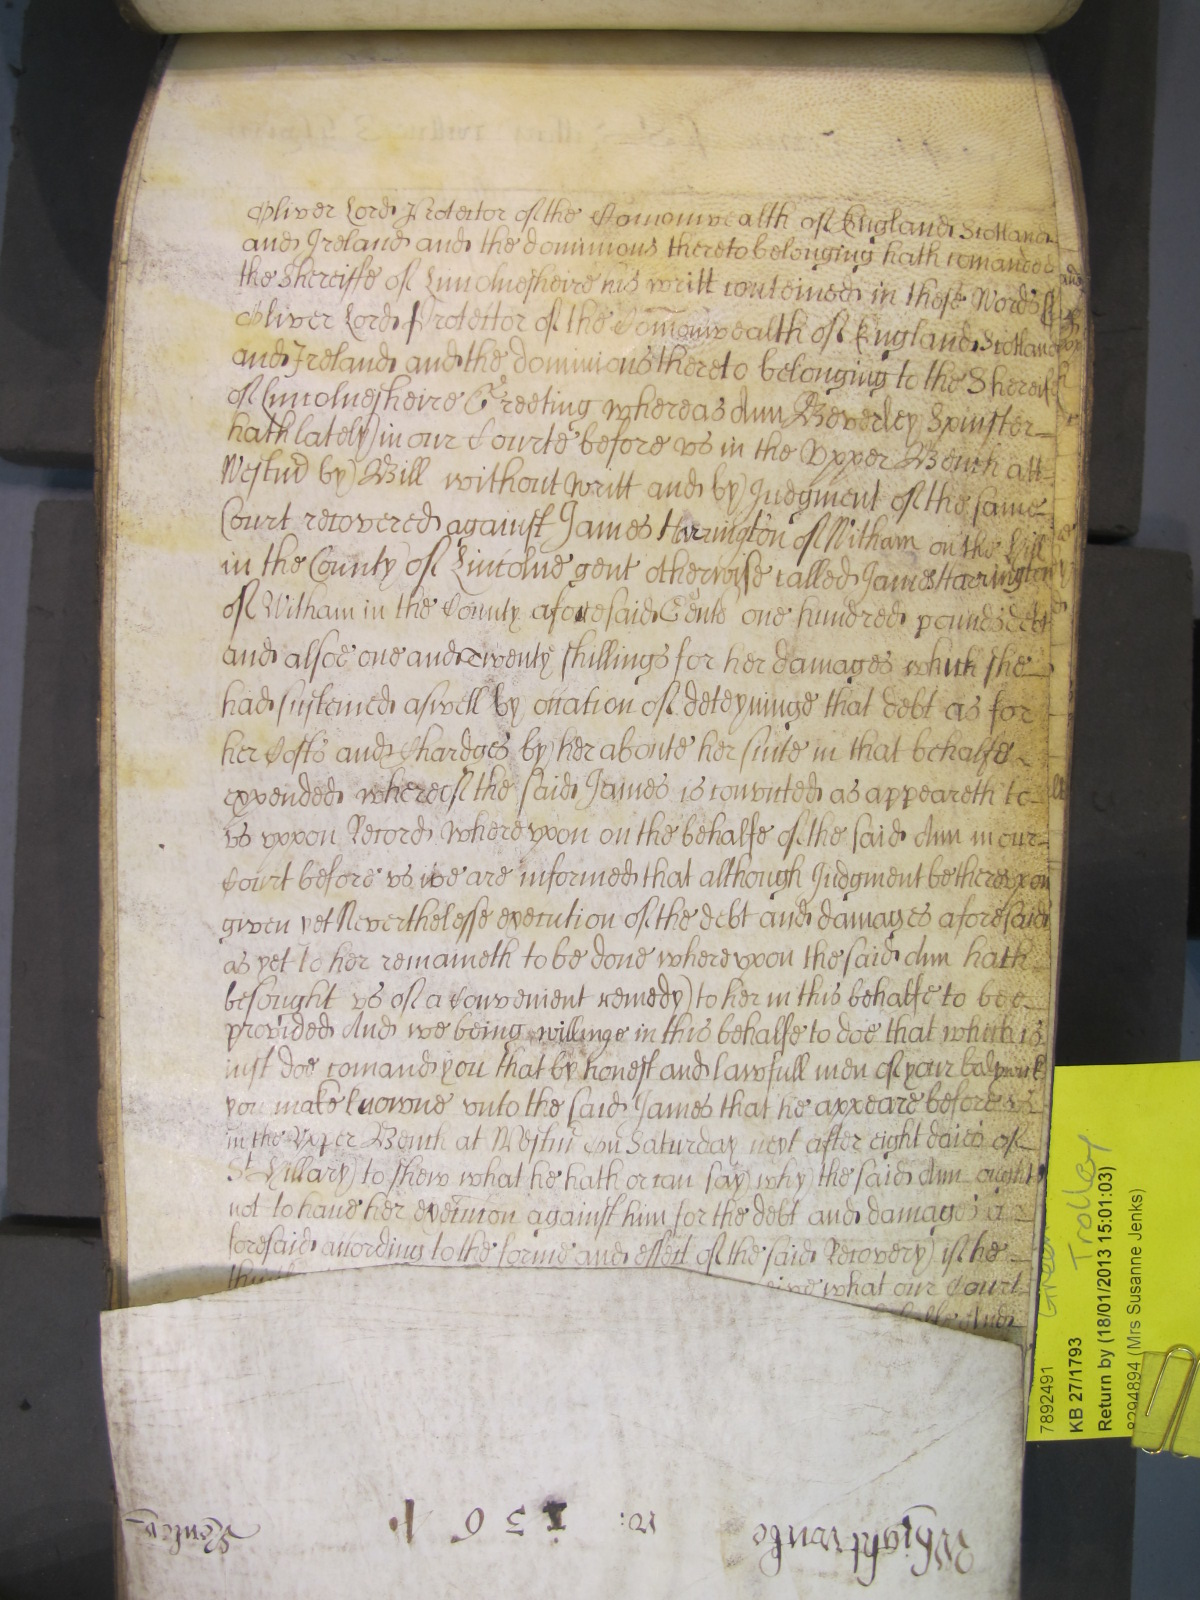 Oliver Lord Protector of the Comonwealth of England Scotland
and Ireland and the dominions thereto belonging hath comanded
the Shereiffe of Lincolnesheire his writt conteined in these Words ss
Oliver Lord Protector of the Comonwealth of England Scotland
and Ireland and the dominions thereto belonging to the Shereiff
of Lincolnesheire Greeting whereas Ann Beverley Spinster
hath lately in our Courte before vs in the Vpper Bench att
Westmr by Bill without writt and by Judgment of the same
Court recovered against James Harrington of Witham on the Hill
in the County of Lincolne gent otherwise called James Harrington
of Witham in the County aforesaid Gent one hundred pounds debt
and alsoe one and twenty shillings for her damages which she
had susteined aswell by occation of deteyninge that debt as for
her Costs and Chardges by her aboute her suite in that behalfe
expended whereof the said James is convicted as appeareth to
vs vppon Record Wherevpon on the behalfe of the said Ann in our
Court before vs wee are informed that although Judgment be therevpon
given yet Neverthelesse execution of the debt and damages aforesaid
as yet to her remaineth to be done wherevpon the said Ann hath
besought vs of a Convenient remedy to her in this behalfe to bee
provided And we being willinge in this behalfe to doe that which is
iust doe comand you that by honest and lawfull men of your balywick
you make knowne vnto the said James that he appeare before vs
in the Vpper Bench at Westmr on Saturday next after eight daies of
St Hillary to shew what he hath or can say why the said Ann ought
not to haue her execution against him for the debt and damages a
foresaid according to the forme and effect of the said Recovery if he
what our Court
And
Wightwicke
ro: 1361
Henley
Trolley
7892491
KB 27/1793
Return by (18/01/2013 15:01:03)
8294894 (Mrs Susanne Jenks)